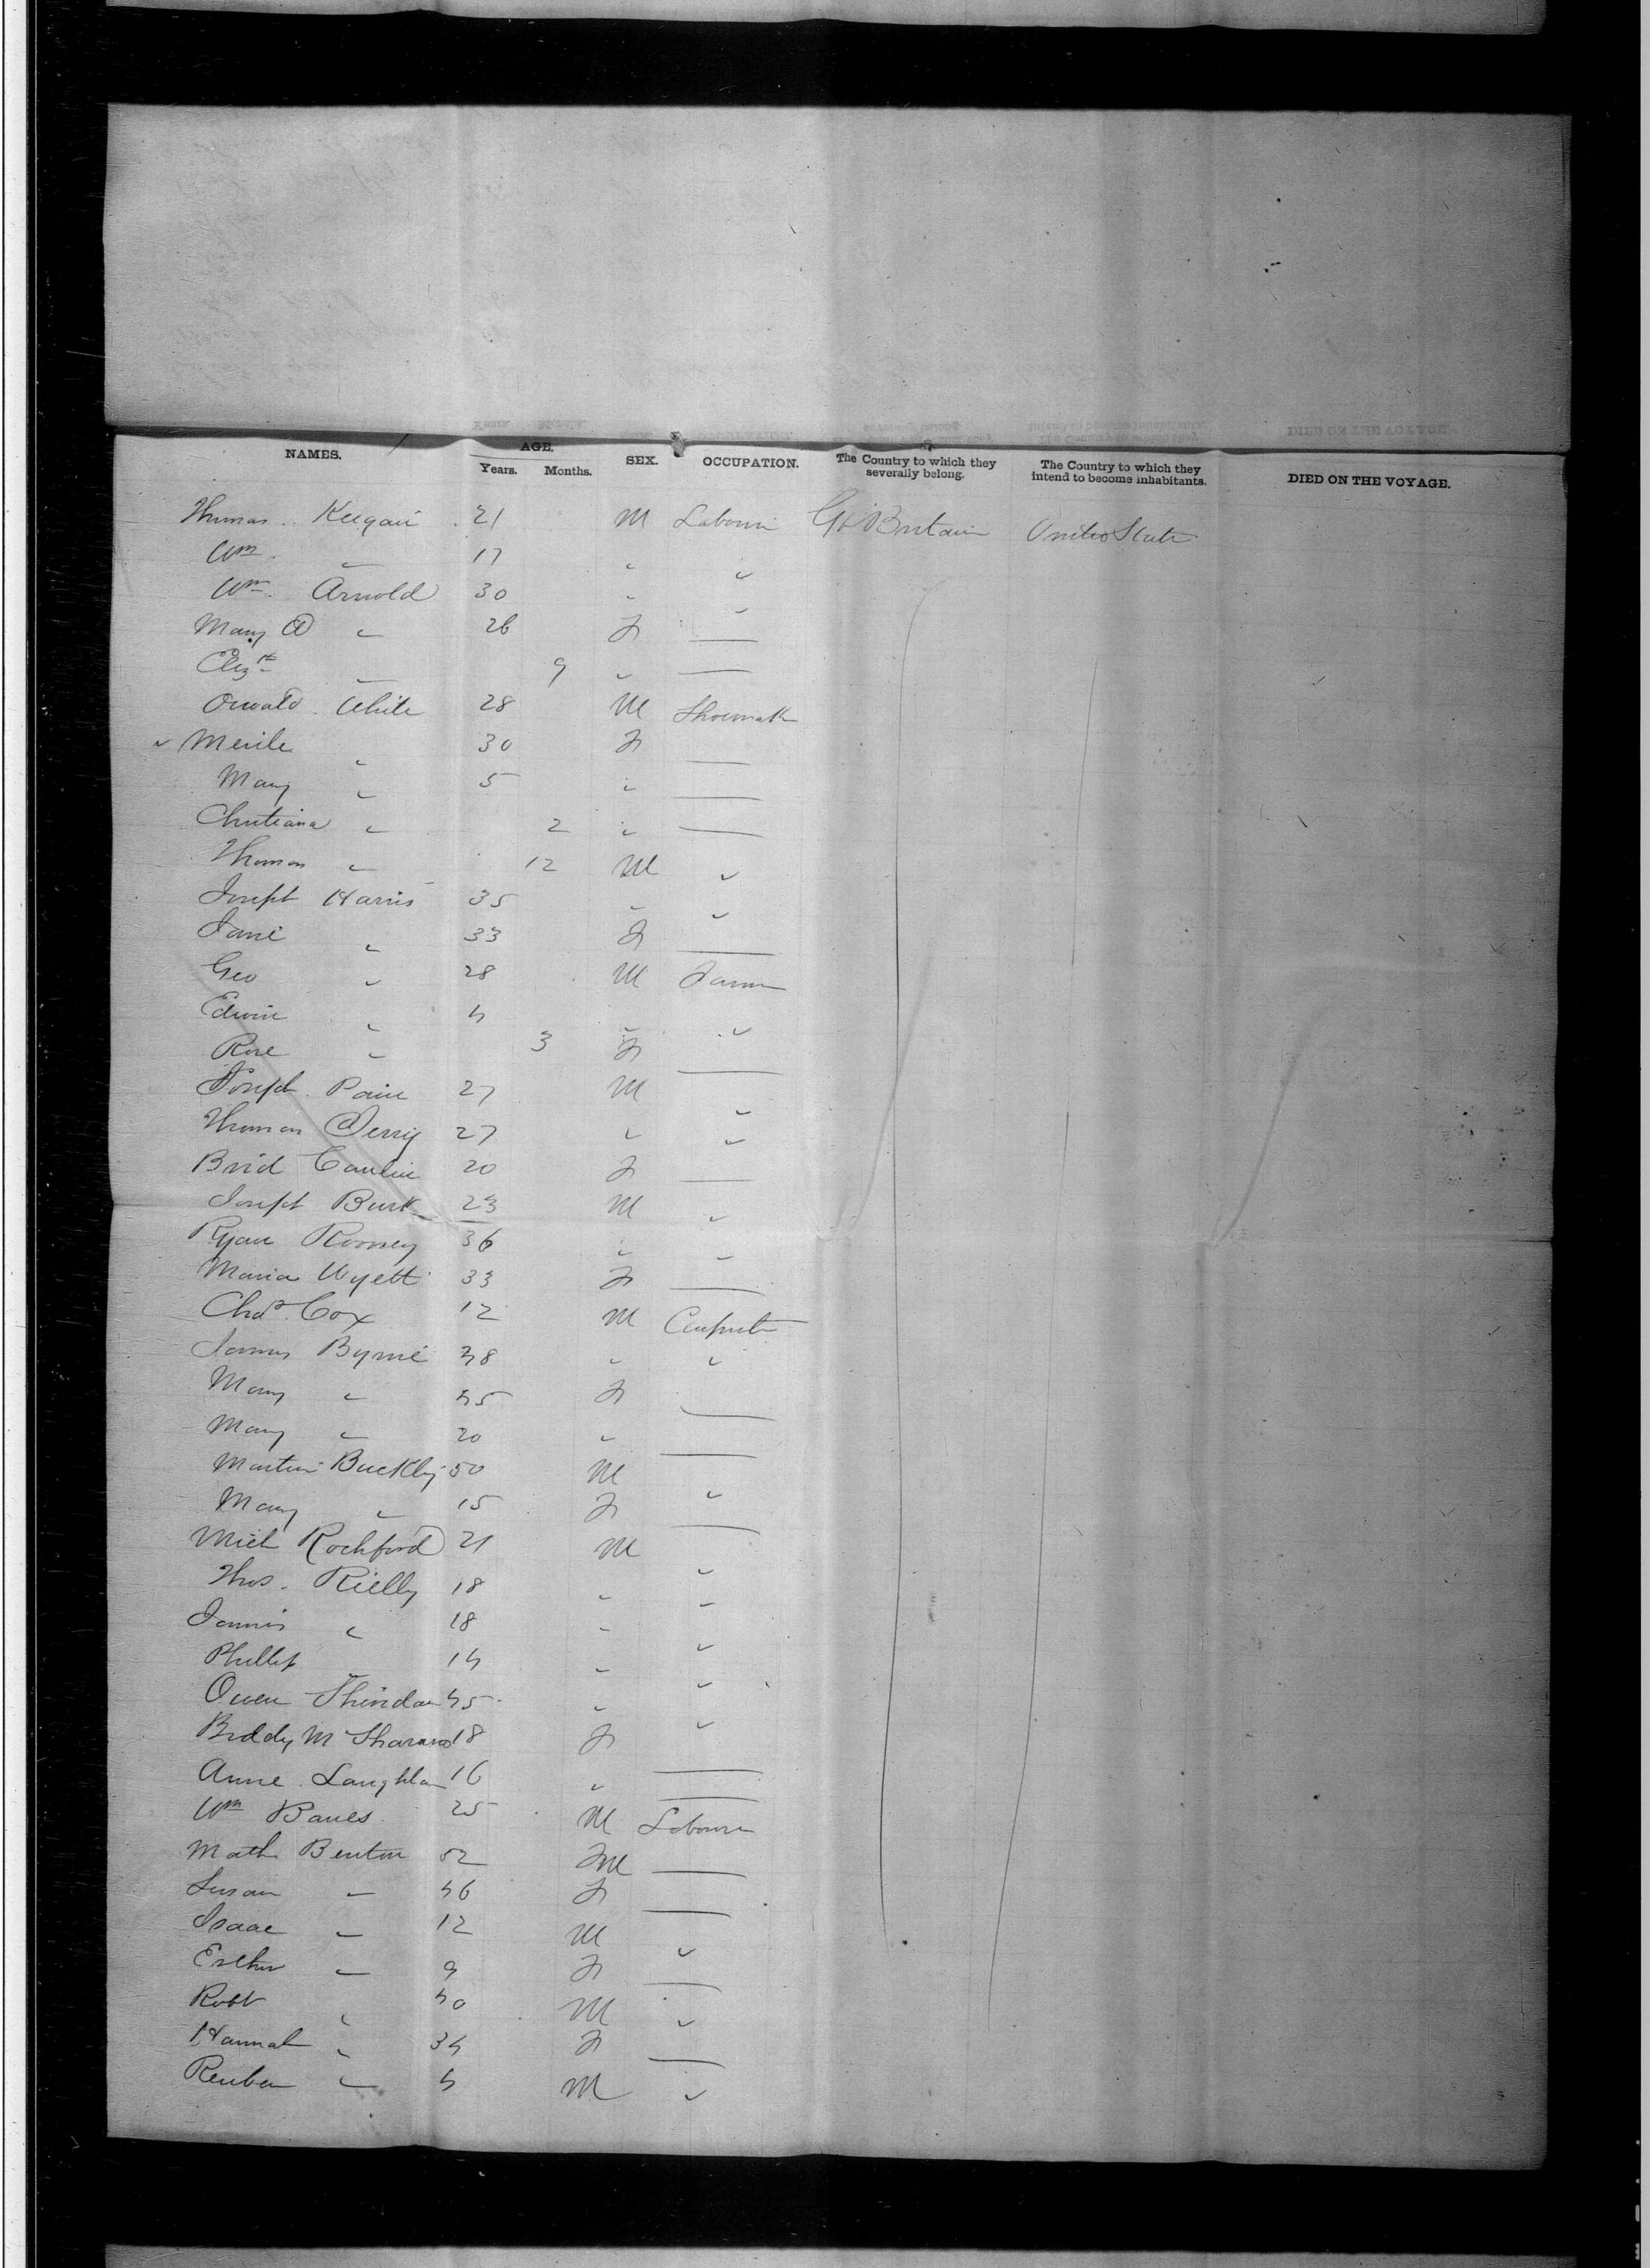 NAMES. AGE. SEX. OCCUPATION. The Country to which they severally belong. The Country to which they intend to become inhabitants. DIED ON THE VOYAGE.
Years. Months.
Thomas Keegan 21 M Labourer Gt Britain United States
Wm " 17 " "
Wm Arnold 30 " "
Mary A " 26 F —
Elizth " 9 " —
Oswald White 28 M Shoemak
Merile " 30 F —
Mary " 5 " —
Christiana " 2 " —
Thomas " 12 M "
Joseph Harris 35 " "
Jane " 33 F —
Geo " 28 M Farmer
Edwin " 4 " "
Rose " 3 F —
Joseph Paine 27 M "
Thomas Derry 27 " "
Brid Caulin 20 F —
Joseph Burk 23 M "
Ryan Rooney 36 " "
Maria Wyett 33 F —
Chas Cox 12 M Carpenter
James Byrne 48 " "
Mary " 45 F —
Mary " 20 " —
Martin Buckley 50 M "
Mary " 15 F —
Mich Rochford 21 M "
Thos. Rielly 18 " "
James " 18 " "
Phillip " 14 " "
Owen Sheridan 45 " "
Biddy Mc 18 F —
Anne Laughlan 16 " —
Wm Banes 25 M Labourer
Math Benton 52 M —
Susan " 46 F —
Isaac " 12 M "
Esther " 9 F —
Robt " 40 M "
Hannah " 34 F —
Reuben " 4 M "